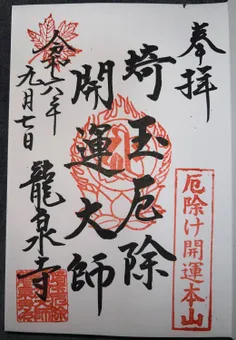 奉拝
厄除け開運本山
埼玉厄除
開運大師
龍泉寺
令和六年
九月七日